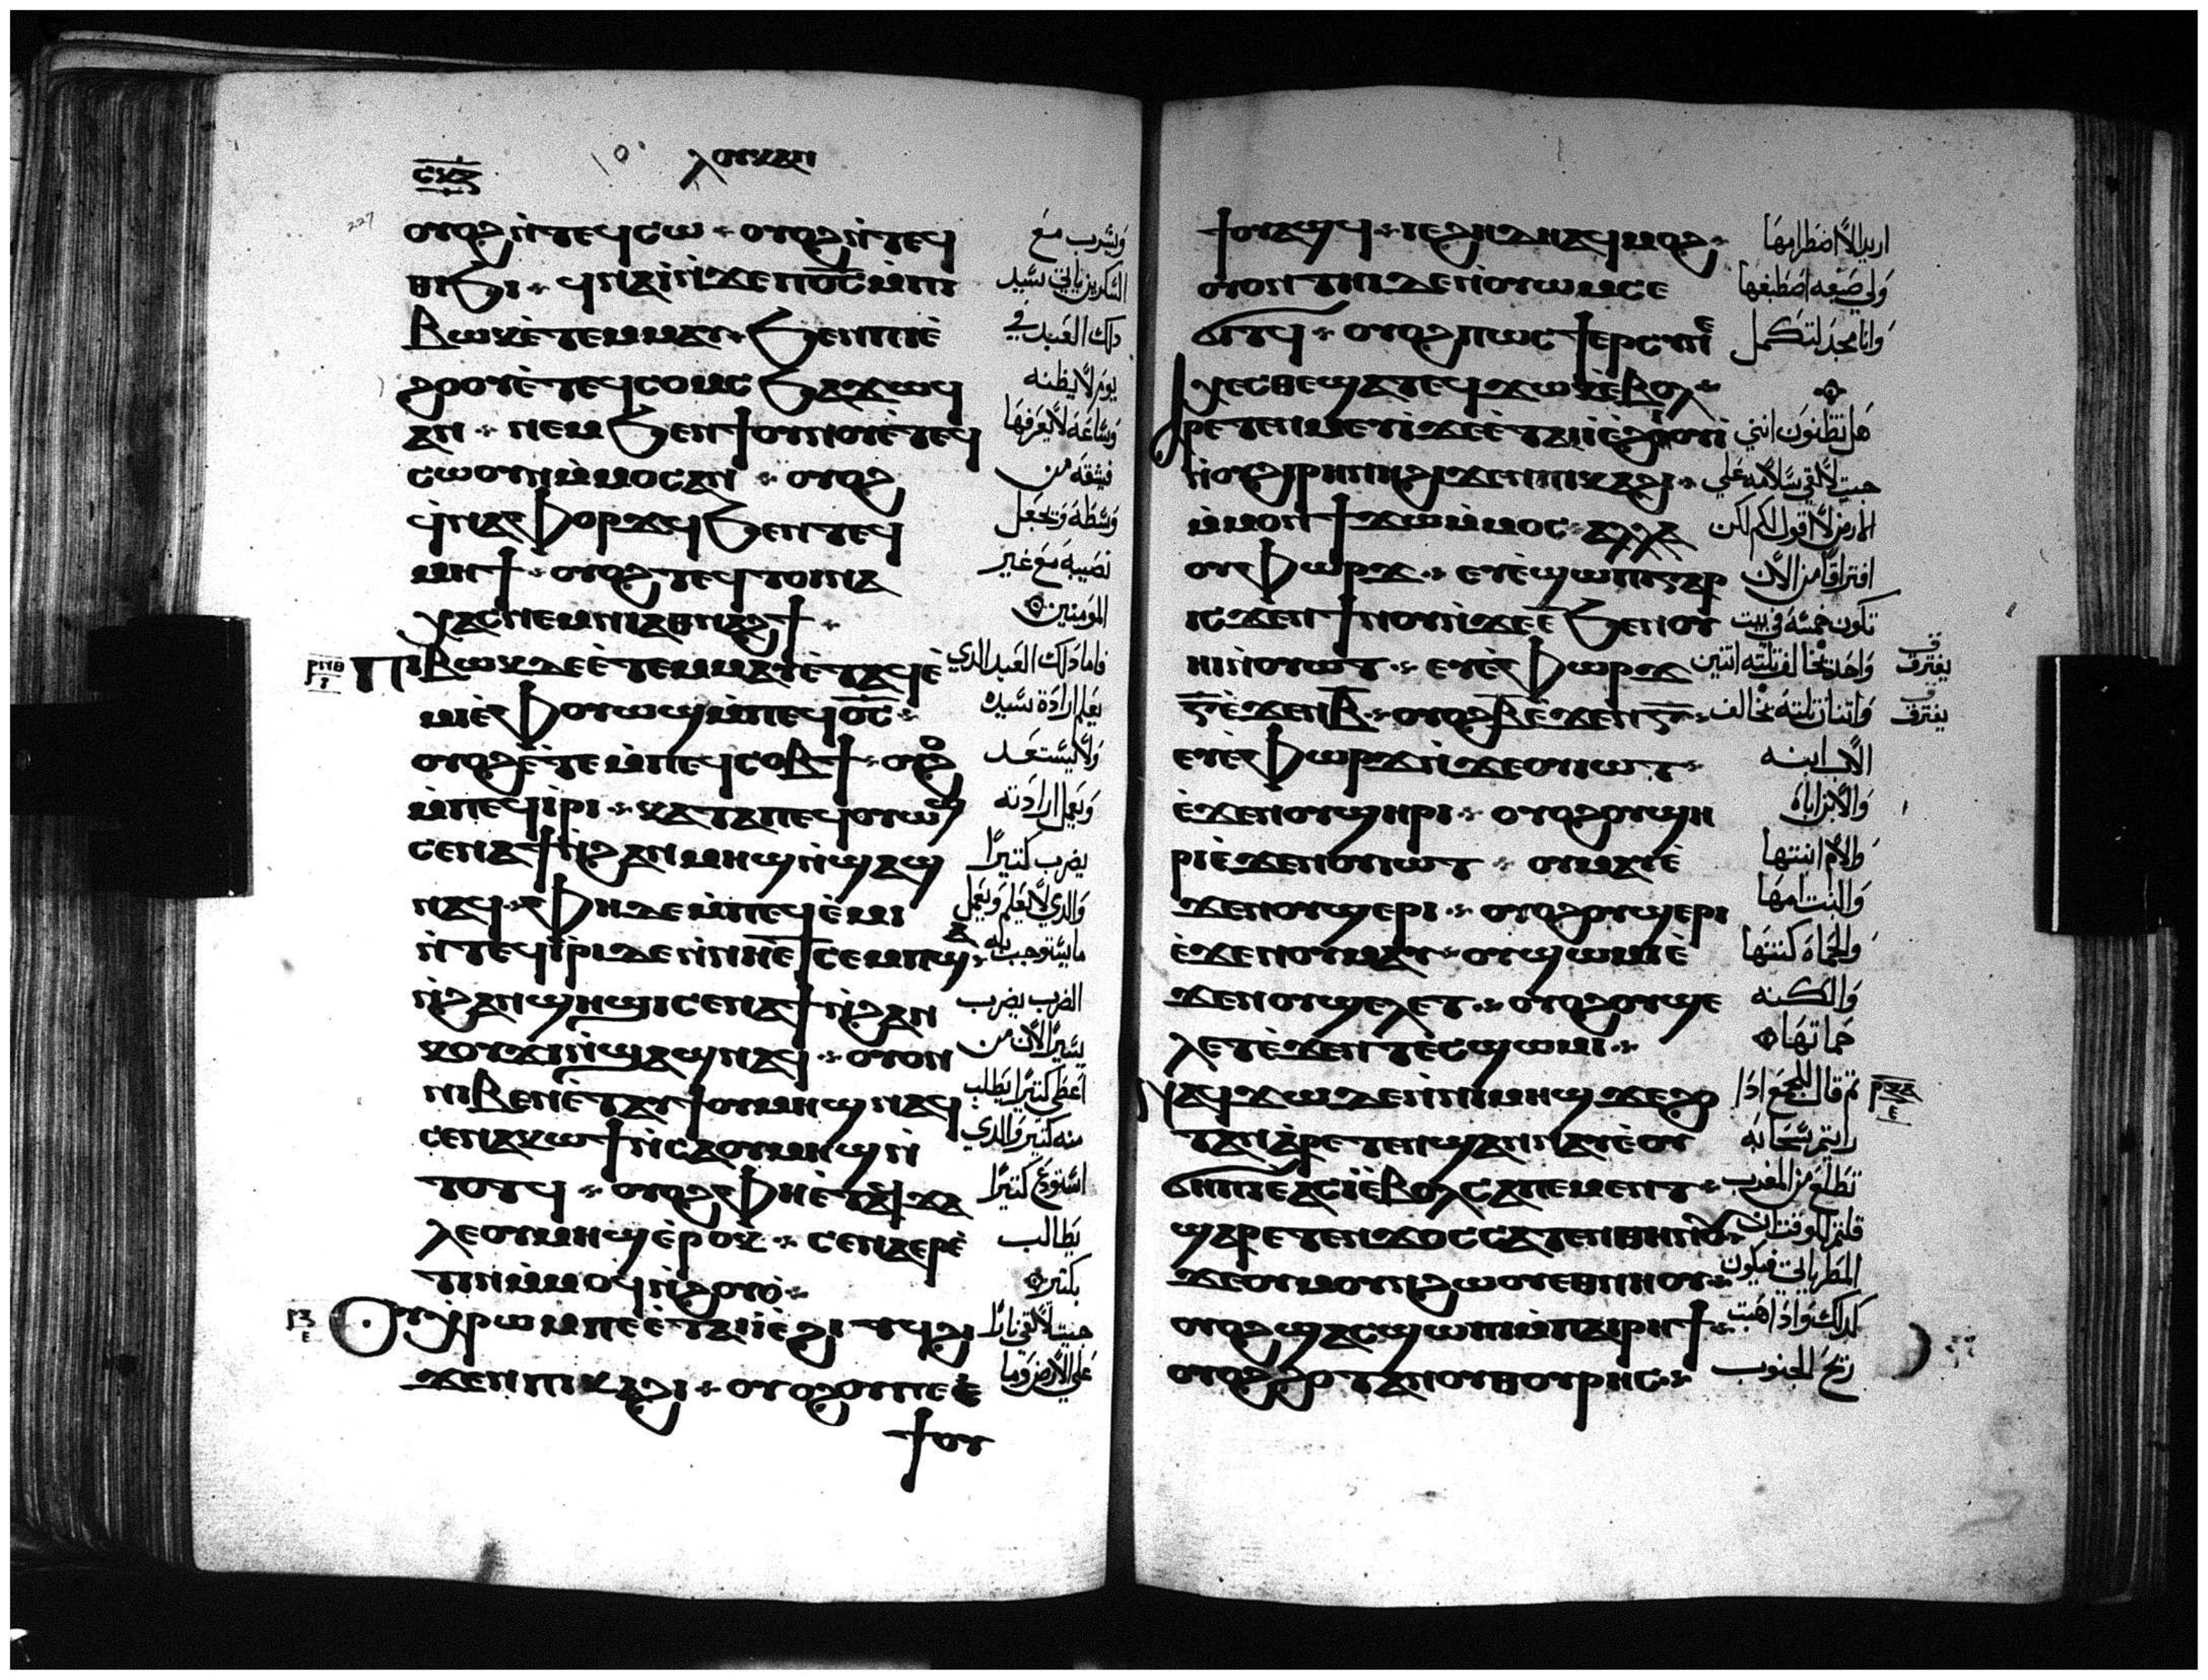 ⲥⲕⲍ
ⲗⲟⲩⲕⲁⲛ
227
ⲟⲩⲟϩ ⲛ̀ⲧⲉϥⲥⲱ ⲟⲩⲟϩ ⲛ̀ⲧⲉϥ
ⲑⲓϧⲓ ϥⲛⲁⲓ̀ ⲛ̀ϫⲉ ⲡⲟ̅ⲥ̅ ⲙ̀ⲡⲓ
ⲃⲱⲕ ⲉ̀ⲧⲉⲙⲙⲁⲩ ϧⲉⲛ ⲡⲓⲉ̀
ϩⲟⲟⲩ ⲉ̀ⲧⲉϥⲥⲟⲙⲥ ϧⲁϫⲱϥ
ⲁⲛ ⲛⲉⲙ ϧⲉⲛ ϯⲟⲩⲛⲟⲩ ⲉ̀ⲧⲉϥ
ⲥⲱⲟⲩⲛ ⲙ̀ⲙⲟⲥ ⲁⲛ ⲟⲩⲟϩ
ϥ̀ⲛⲁⲉⲣⲫⲟⲣϫϥ ϧⲉⲛ ⲧⲉϥ
ⲙⲏϯ ⲟⲩⲟϩ ⲧⲉϥⲧⲟⲓ ⲛⲁ
ⲭⲁⲥ ⲛⲉⲙ ⲛⲓⲁⲑⲛⲁϩϯ
ⲣⲛⲑ
ⲡⲓⲃⲱⲕ ⲇⲉ ⲉ̀ⲧⲉⲙⲙⲁⲩ ⲉ̀ⲧⲁϥⲉ̀
ⲙⲓ ⲉ̀ⲫⲟⲩⲱϣ ⲙ̀ⲡⲉϥⲟ̅ⲥ̅
ⲟⲩⲟϩ ⲉ̀ⲧⲉ ⲙ̀ⲡⲉϥⲥⲟⲃϯ ⲟⲩⲟϩ
ⲙ̀ⲡⲉϥⲓ̀ⲣⲓ ⲕⲁⲧⲁ ⲡⲉϥⲟⲩⲱϣ
ⲥⲉⲛⲁϯ ⲛ̀ϩⲁⲛⲙⲏϣ ⲛ̀ϣⲁϣ
ⲛⲁϥ ⲫⲏ ⲇⲉ ⲙ̀ⲡⲉϥⲉ̀ⲙⲓ
ⲛ̀ⲧⲉϥⲓ̀ⲣⲓ ⲇⲉ ⲛ̀ⲛⲏ ⲉ̀ⲧⲥⲉⲙⲡϣⲁ
ⲛ̀ϩⲁⲛϣⲏϣⲓ ⲥⲉⲛⲁϯ ⲛ̀ϩⲁⲛ
ⲕⲟⲩϫⲓ ⲛ̀ϣⲁϣ ⲛⲁϥ ⲟⲩⲟⲛ
ⲛⲓⲃⲉⲛ ⲉ̀ⲧⲁⲩϯ ⲟⲩⲙⲏϣ ⲛⲁϥ
ⲥⲉⲛⲁⲕⲱϯ ⲛ̀ⲥⲁ ⲟⲩⲙⲏϣ ⲛ̀
ⲧⲟⲧϥ ⲟⲩⲟϩ ⲫⲏ ⲉ̀ⲧⲁⲩϫⲁ
ⲗⲉ ⲟⲩⲙⲏϣ ⲉ̀ⲣⲟϥ ⲥⲉⲛⲁⲉⲣⲉ̀
ⲧⲓⲛ ⲙ̀ⲙⲟϥ ⲛ̀ϩⲟⲩⲟ̀
ⲣⲝ
ⲉ
ⲟⲩⲭⲣⲱⲙ ⲡⲉ ⲉ̀ⲧⲁⲓⲓ̀ ⲉ̀ϩⲓⲧϥ ϩⲓ
ϫⲉⲛ ⲡⲓⲕⲁϩⲓ ⲟⲩⲟϩ ⲟⲩ ⲡⲉ ⲉ̀
ϯⲟⲩ
وَيشرب مَع
السَّكرين ياتي سَيد
ذلك العَبد في
يوم لَا يظنه
وسَّاعَة لَا يَعرفها
فيشقه من
وَسَّطه وَيجعَل
نصَيبه مَع غير
المؤمنين
فاما ذلك العَبد الذي
يعَلم ارَادَة سَّيده
وَلَا يستعَد
وَيعمل ارَادته
يضرب كتيرًا
وَالذي لَا يعَلم وَيعمَل
ما يستوجب به
الضرب يضرب
يسَّيرًا لان من
اعطى كتيرًا يَطلب
منه كتير وَالذي
استودع كتيرًا
يطَالب
بكتير
جيت لَا لقي نارًا
عَلي الَارض وَمَا
ϯⲟⲩⲁϣϥ ⲓⲉϩⲏⲇⲏ ⲁϥⲙⲟϩ
ⲟⲩⲟⲛⲧⲏⲓ ⲇⲉ ⲛ̀ⲟⲩⲱⲙⲥ ⲉ
ϭⲓⲧϥ ⲟⲩⲟϩ ⲡⲱⲥ ϯⲉⲣⲥⲩⲛⲉ
ⲭⲉⲥⲑⲉ ϣⲁⲧⲉϥϫⲱⲕ ⲉ̀ⲃⲟⲗ
ⲁⲣⲉⲧⲉⲛⲙⲉⲩⲓ̀ ϫⲉ ⲉ̀ⲧⲁⲓⲓ̀ ⲉ̀ϩⲓⲟⲩⲓ̀
ⲛ̀ⲟⲩϩⲓⲣⲏⲛⲏ ϩⲓϫⲉⲛ ⲡⲓⲕⲁϩⲓ
ⲙ̀ⲙⲟⲛ ϯϫⲱ ⲙ̀ⲙⲟⲥ ⲁⲗⲗⲁ
ⲟⲩⲫⲱⲣϫ ⲉⲩⲉ̀ϣⲱⲡⲓ ⲅⲁⲣ
ⲓⲥϫⲉⲛ ϯⲛⲟⲩ ⲛ̀ϫⲉ ⲉ̅ ϧⲉⲛ ⲟⲩ
ⲏⲓ ⲛ̀ⲟⲩⲱⲧ ⲉⲩⲉ̀ⲫⲱⲣϫ
ⲅ̅ ⲉ̀ϫⲉⲛ ⲃ̅ ⲟⲩⲟϩ ⲃ̅ ⲉ̀ϫⲉⲛ ⲅ̅
ⲉⲩⲉ̀ⲫⲱⲣϫ ⲛ̀ϫⲉ ⲟⲩⲓⲱⲧ
ⲉ̀ϫⲉⲛ ⲟⲩϣⲏⲣⲓ ⲟⲩⲟϩ ⲟⲩϣⲏ
ⲣⲓ ⲉ̀ϫⲉⲛ ⲟⲩⲓⲱⲧ ⲟⲩⲙⲁⲩ ⲉ̀
ϫⲉⲛ ⲟⲩϣⲉⲣⲓ ⲟⲩⲟϩ ⲟⲩϣⲉⲣⲓ
ⲉ̀ϫⲉⲛ ⲟⲩⲙⲁⲩ ⲟⲩϣⲱⲙⲓ ⲉ̀
ϫⲉⲛ ⲟⲩϣⲉⲗⲉⲧ ⲟⲩⲟϩ ⲟⲩϣⲉ
ⲗⲉⲧ ⲉ̀ϫⲉⲛ ⲧⲉⲥϣⲱⲙⲓ
ⲛⲁϥϫⲱ ⲇⲉ ⲛ̀ⲛⲓⲙⲏϣ ϫⲉ ϩⲟ
ⲧⲁⲛ ⲁ̀ⲣⲉⲧⲉⲛϣⲁⲛⲛⲁⲩ ⲉ̀ⲟⲩ
ϭⲏⲡⲓ ⲉⲁⲥⲓ̀ ⲉ̀ⲃⲟⲗ ⲥⲁ ⲡⲉⲙⲉⲛⲧ
ϣⲁⲣⲉⲧⲉⲛϫⲟⲥ ⲥⲁⲧⲉⲛⲑⲏⲛⲟⲩ
ϫⲉ ⲟⲩⲙⲟⲩⲛϩⲱⲟⲩ ⲉⲑⲛⲏⲟⲩ
ⲟⲩⲟϩ ϣⲁⲥϣⲱⲡⲓ ⲙ̀ⲡⲁⲓⲣⲏϯ
ⲟⲩⲟϩ ϩⲟⲧⲁⲛ ⲟⲩⲑⲟⲩⲣⲏⲥ
اريد الَّا اضطرامهَا
وَلي صَبغه اصَطبغها
وَانا مجد لتكمل
هَل تظنوَن انني
جيت لَالقي سَّلَامَه عَلي
الارض لَا اقول لكم لكن
افترَاقًا من الَان
تكون خمسَّة في بيت
وَاحد يخَالف تلَته اتنين
وَاتنان تلَتة يخَالف
الَاب ابنه
وَالابن ابَاهُ
وَالام ابنتهَا
وَالبنت امهَا
وَالحمَاة كنتهَا
وَالكنه
حمَاتهَا
تم قال للجمع اذَا
رَايتم سَّحَابَه
تطَلَع من المغرب
قلتم للوقت ان
المَطر يَاتي فيكون
كذلك وَاذَا هَبت
ريح الجنوب
يفترق
يفترق
ⲣⲝⲁ
ⲉ